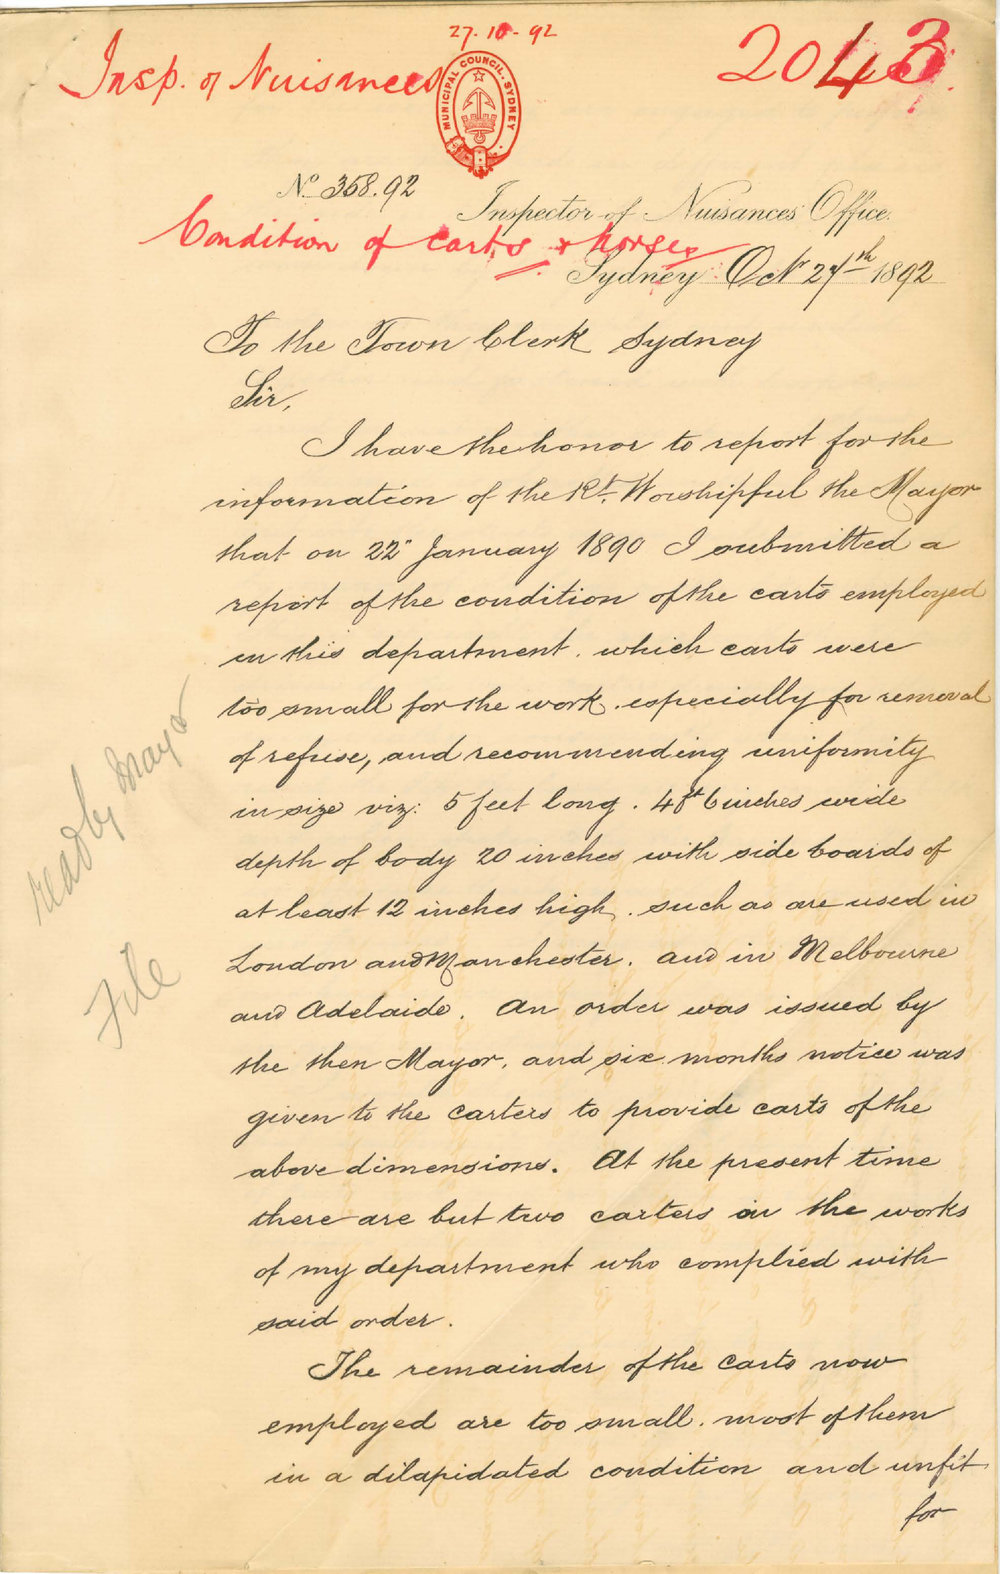 27. 10. 92
Insp. of Nuisances
2043
MUNICIPAL COUNCIL. SYDNEY.
No 358.92
Inspector of Nuisances Office.
Condition of carts & horses
Sydney Oct 27th 1892
To the Town Clerk Sydney
Sir,
I have the honor to report for the
information of the Rt. Worshipful the Mayor
that on 22" January 1890 I submitted a
report of the condition of the carts employed
in this department. which carts were
too small for the work. especially for removal
of refuse, and recommending uniformity
in size viz: 5 feet long. 4ft 6 inches wide
depth of body 20 inches with side boards of
at least 12 inches high. such as are used in
London and Manchester. and in Melbourne
and Adelaide. An order was issued by
the then Mayor, and six months notice was
given to the carters to provide carts of the
above dimensions. At the present time
there are but two carters in the works
of my department who complied with
said order.
The remainder of the carts now
employed are too small. most of them
in a dilapidated condition and unfit
for
read by Mayor
File